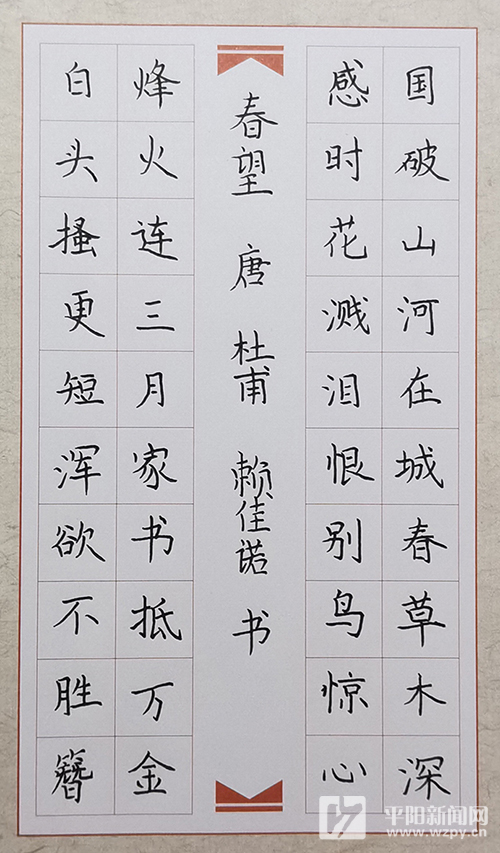 国破山河在城春草木深
感时花溅泪恨别鸟惊心
春望 唐 杜甫 赖佳诺 书
烽火连三月家书抵万金
白头搔更短浑欲不胜簪
平阳新闻网
www.wzpy.cn